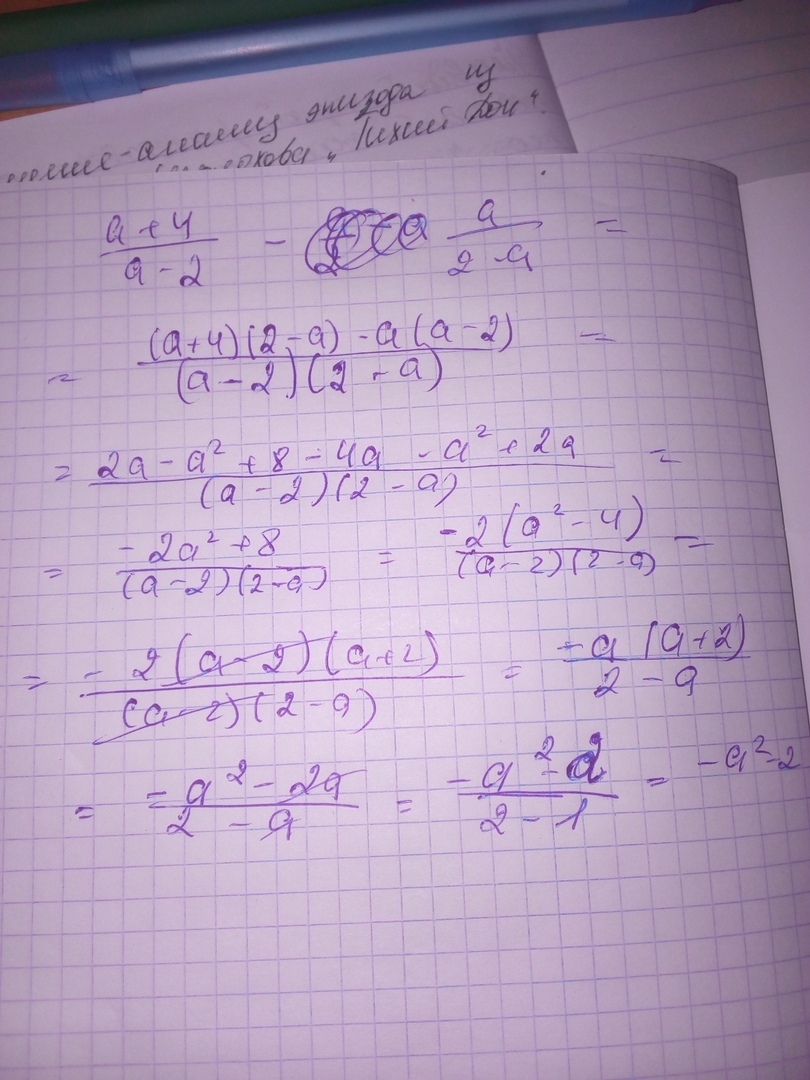 анализ эпизода из
"Тихий Дон".
(a+4)/(a-2) - a/(2-a) =
= ((a+4)(2-a) - a(a-2))/((a-2)(2-a)) =
= (2a - a² + 8 - 4a - a² + 2a)/((a-2)(2-a)) =
= (-2a² + 8)/((a-2)(2-a)) = -2(a² - 4)/((a-2)(2-a)) =
= -2(a-2)(a+2)/((a-2)(2-a)) = -a(a+2)/(2-a)
= (-a² - 2a)/(2-a) = (-a² - 2)/(2-1) = -a² - 2